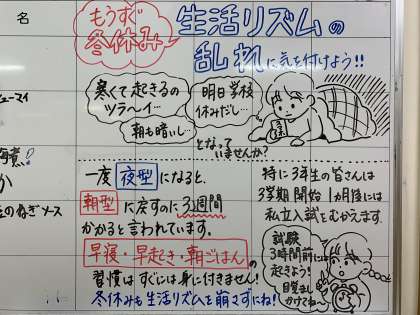 名
もうすぐ
冬休み
生活リズムの
乱れに気を付けよう!!
寒くて起きるの
ツラ〜イ…
朝も暗いし…
明日学校
休みだし…
となって
いませんか?
一度 夜型 になると、
朝型 に戻すのに3週間
かかると言われています。
早寝・早起き・朝ごはん の
習慣はすぐには身に付きません!
冬休みも生活リズムを崩さずにね!
特に3年生の皆さんは
3学期開始1ヵ月後には
私立入試をむかえます。
試験
3時間前には
起きよう!
目覚まし
かけてね
のねぎソース